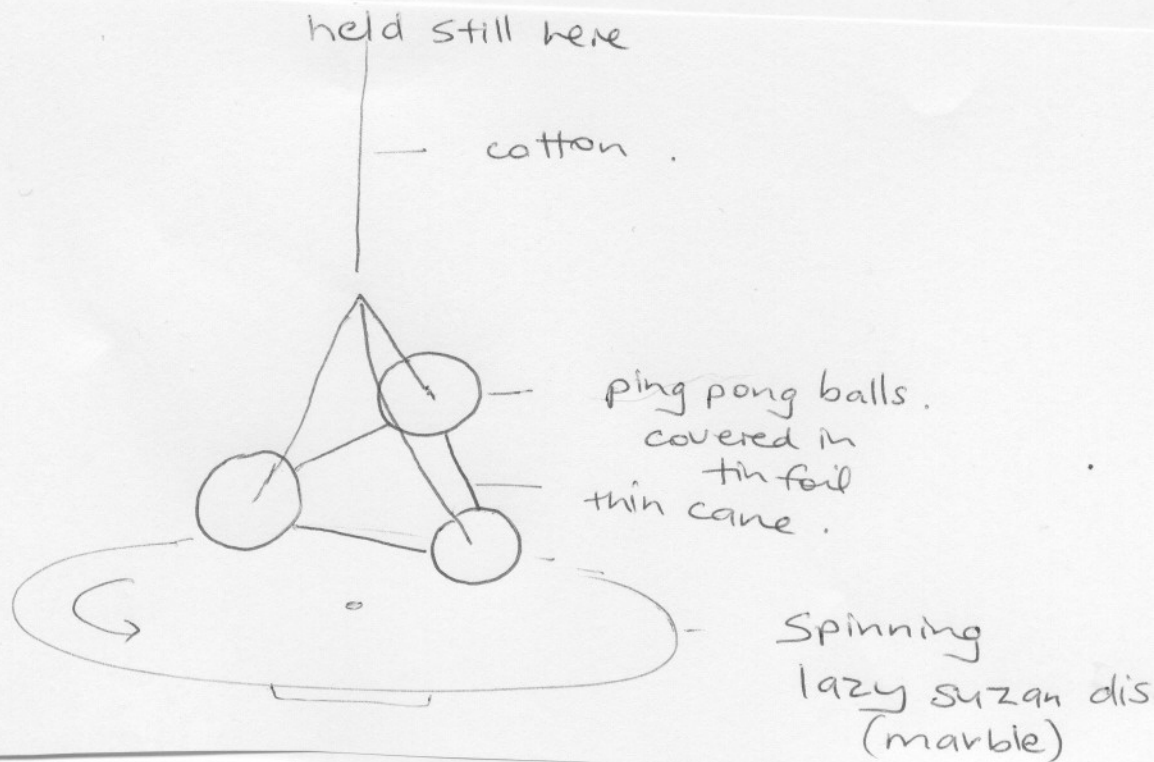 held still here
cotton.
ping pong balls.
covered in
tin foil
thin cane.
Spinning
lazy suzan dis
(marble)